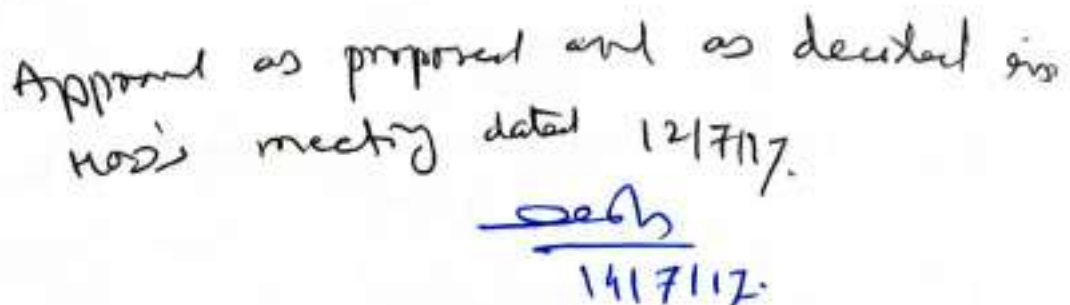 Approved as proposed and as decided in
HOD's meeting dated 12/7/17.
14/7/17.